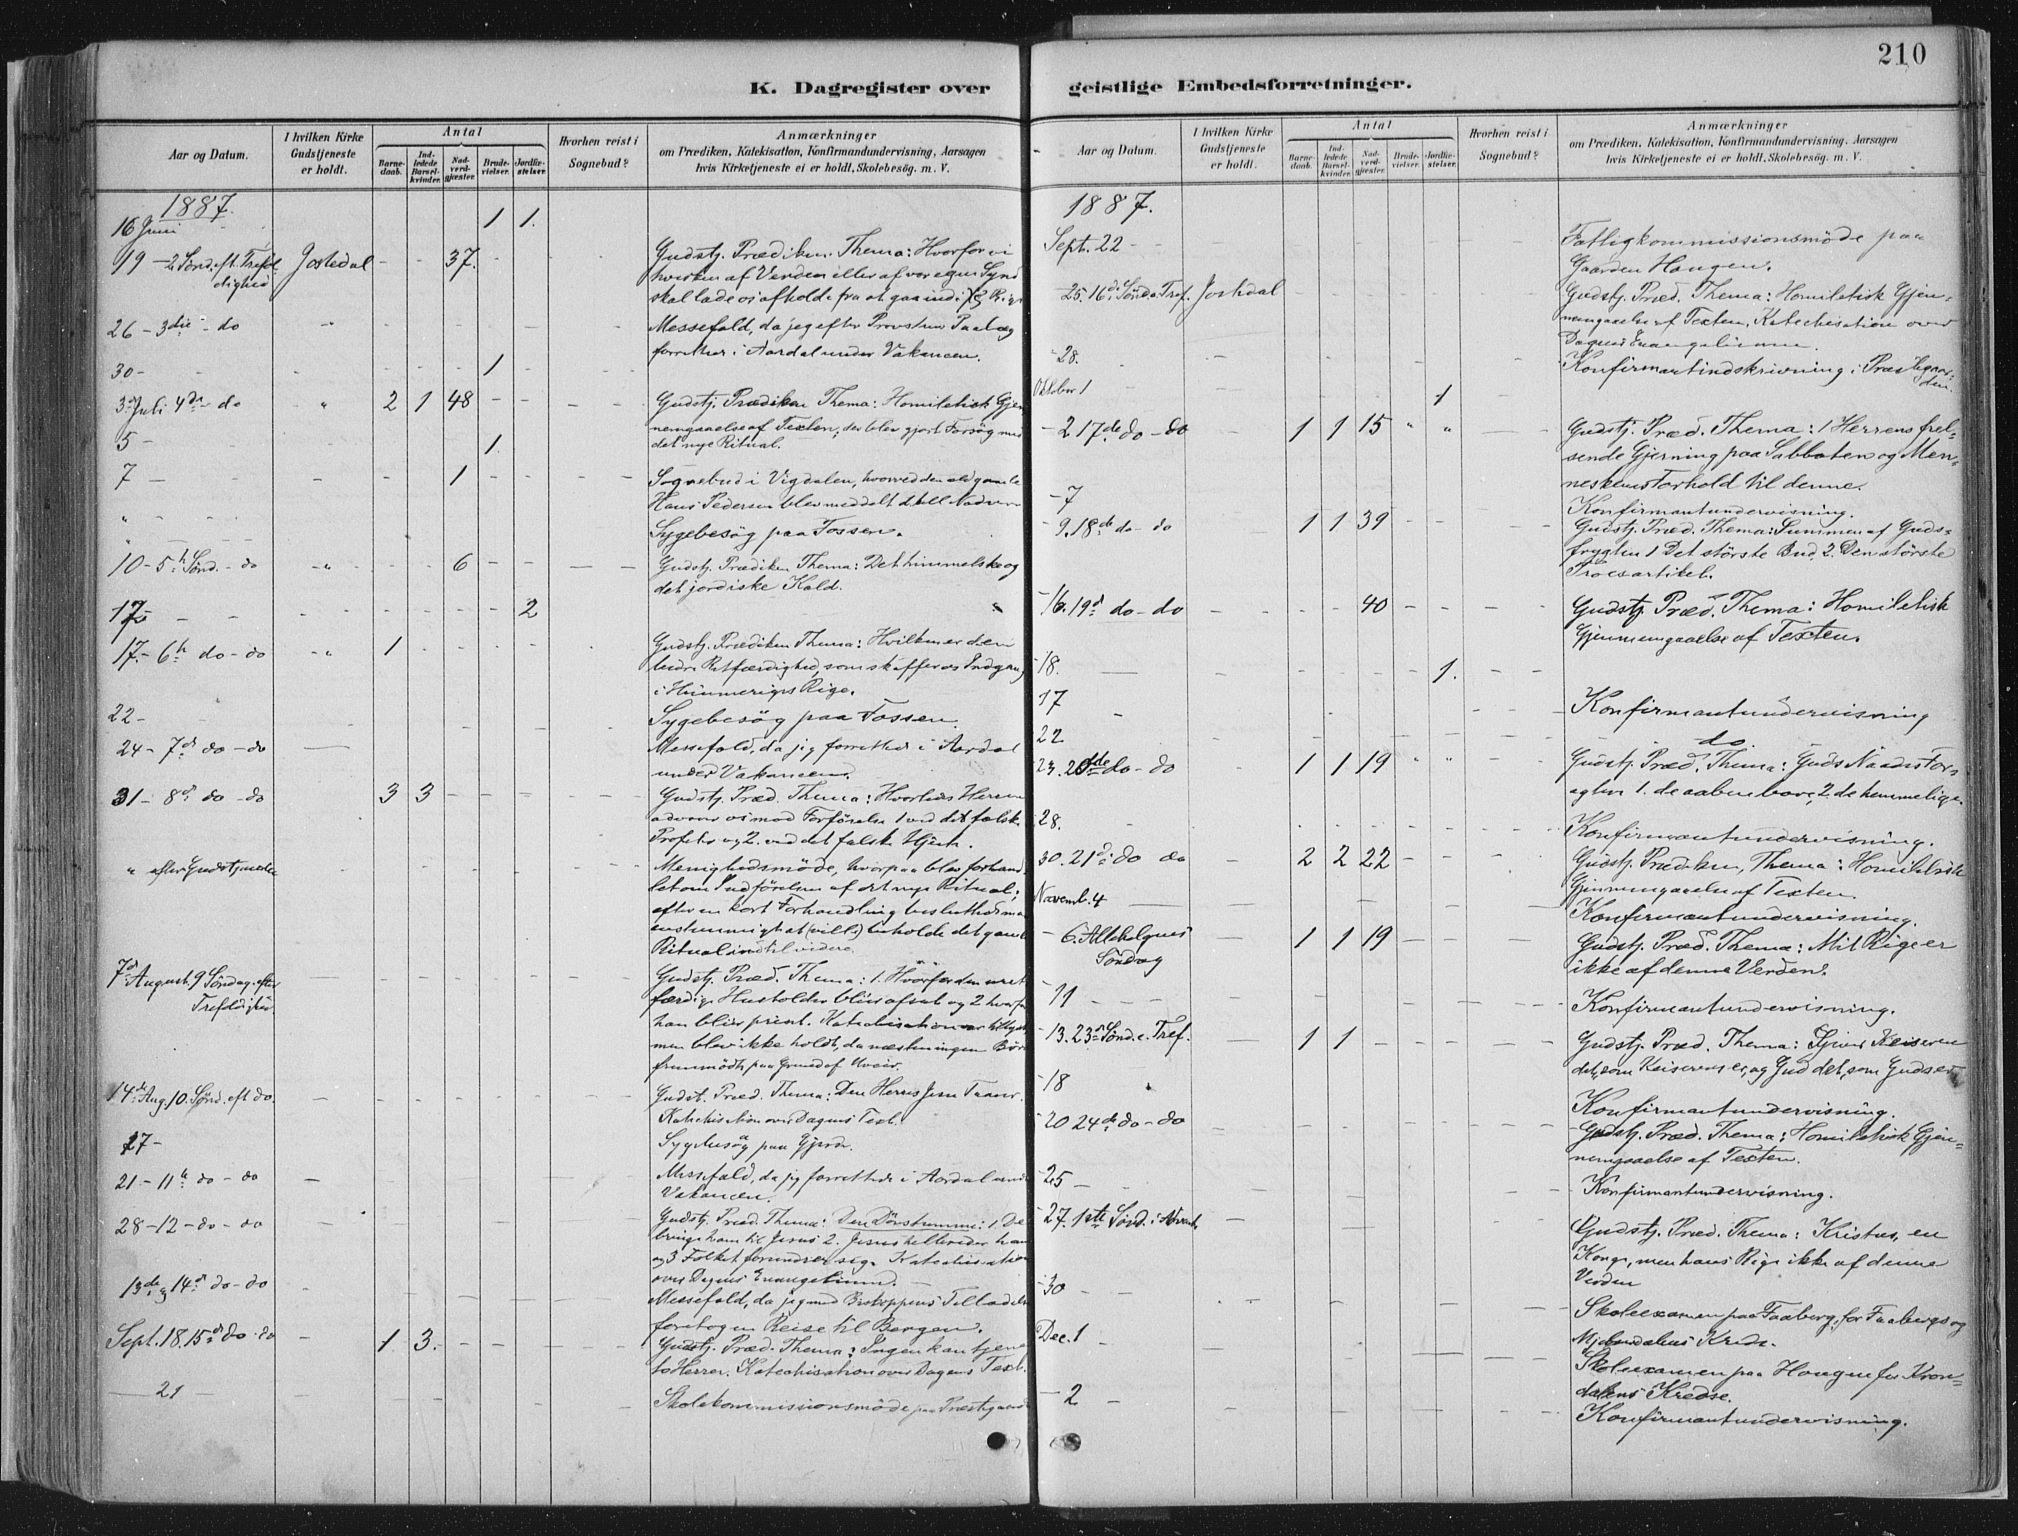 210
K. Dagregister over
Aar og Datum.
I hvilken Kirke Gudstjeneste er holdt.
Antal
Barnedaab.
Indledede Barselkvinder.
Nadverdgjæster.
Brudevielser.
Jordfæstelser.
Hvorhen reist i Sognebud?
Anmærkninger
om Prædiken, Katekisation, Konfirmandundervisning, Aarsagen
hvis Kirketjeneste ei er holdt, Skolebesøg. m. V.
1887.
16 Juni 1 1.
19 - 2 Sønd. eft. Trefol Jostedal 37. Gudstj. Prædiken Thema: Hvorfor vi
dighed hverken af Verden eller af vor egen Synd
skal lade os afholde fra at gaa ind i
26 - 3die do " Messefald, da jeg efter Provstens
forretter i Aardal under Vakancen.
30 - 1
3 Juli 4de do " 2 1 48 Gudstj. Prædiken Thema: Homiletisk Gjen
nemgaaelse af Texten; der blev gjort Forsøg med
5 - 1. det nye Ritual.
7 - 1 Sognebud i Vigdalen, hvorved den
Hans Pedersen blev meddelt
" Sygebesøg paa Fossen.
10 - 5te Sønd. do " 6 Gudstj. Prædiken Thema: Det himmelske og
det jordiske Kald.
17 - 2
17 - 6te do - do " 1 Gudstj. Prædiken Thema: Hvilken er den
bedre Retfærdighed, som skaffer os Indgang
i Himmeriges Rige.
22 - Sygebesøg paa Fossen.
24 - 7de do - do Messefald, da jeg forrettede i Aardal
under Vakancen.
31 - 8de do - do 3 3 Gudstj. Præd. Thema: Hvorledes Herren
advarer os mod Forførelse 1 ved det falske
og 2. ved det falske Hjerte.
" efter Gudstjenesten Menighedsmøde, hvorpaa blev forhand
let om Indførelsen af det nye Ritual;
efter en kort Forhandling besluttedes
enstemmigt at (ville) beholde det gamle
Ritual indtil videre.
7de August. 9 Søndag efter Gudstj. Præd. Thema: 1. Hvorfor den uret
Trefoldighed færdige Husholder blev afsat og 2 hvorfor
han blev prist. Katechisation var tillyst
men blev ikke holdt, da næsten ingen Børn
fremmødte paa Grund af Uveir.
14de Aug. 10. Sønd. eft do. Gudst. Præd. Thema: Den Herres Jesu Taarer.
Katechisation over Dagens Text.
17 - Sygebesøg paa
21 - 11te do - do Messefald, da jeg forrettede i Aardal under
Vakancen.
28 - 12 - do - do Gudstj. Præd. Thema: Den Døvstumme: 1. De
bringe ham til Jesus 2. Jesus helbreder ham
og 3 Folket forundrer sig. Katechisation
over Dagens Evangelium.
13de og 14de do - do Messefald, da jeg med Biskoppens Tilladelse
foretog en Reise til Bergen.
Sept. 18. 15de do do 1 3. Gudstj. Præd. Thema: Ingen kan tjene
to Herrer. Katechisation over Dagens Text.
21 - Skolekommissionsmøde paa Præstegaarden
geistlige Embedsforretninger.
Aar og Datum.
I hvilken Kirke Gudstjeneste er holdt.
Antal
Barnedaab.
Indledede Barselkvinder.
Nadverdgjæster.
Brudevielser.
Jordfæstelser.
Hvorhen reist i Sognebud?
Anmærkninger
om Prædiken, Katekisation, Konfirmandundervisning. Aarsagen
hvis Kirketjeneste ei er holdt, Skolebesøg. m. V.
1887.
Sept. 22 - Fattigkommissionsmøde paa
Gaarden Haugen.
25. 16de Sønd. e. Tref. Jostedal Gudstj. Præd. Thema: Homiletisk Gjen-
nemgaaelse af Texten, Katechisation over
Dagens Evangelium.
28. Konfirmantindskrivning i Præstegaar-
den.
Oktober 1 1
2 17de do - do 1 1 15 " " Gudstj. Præd. Thema: 1 Herrens frel-
sende Gjerning paa Sabbaten og Men-
neskenes Forhold til denne.
- 7 Konfirmantundervisning.
- 9. 18de do - do 1 1 39 Gudstj. Præd. Thema: Summen af Guds-
frygten 1 Det største Bud, 2. Den største
Troesartikel.
- 16. 19de do - do 40 Gudstj. Præd. Thema: Homiletisk
Gjennemgaaelse af Texten.
- 18. 1.
17 Konfirmantundervisning
22 do.
23. 20de do - do 1 1 19 " " Gudstj. Præd. Thema: Guds Naades For-
agtere 1. de aabenbare, 2. de hemmelige.
28. Konfirmantundervisning.
30. 21de do do 2 2 22 Gudstj. Prædiken, Thema: Homiletisk
Gjennemgaaelse af Texten.
Novemb. 4 Konfirmantundervisning.
- 6. Allehelgens 1 1 19 Gudstj. Præd. Thema: Mit Rige er
Søndag ikke af denne Verden.
- 11 Konfirmantundervisning.
- 13. 23de Sønd. e. Tref. 1 1 Gudstj. Præd. Thema: Giver Keiseren
det, som Keiserens er, og Gud det, som Guds er
- 18 Konfirmantundervisning.
- 20 24de do - do Gudstj. Præd. Thema: Homiletisk Gjen-
nemgaaelse af Texten.
- 25 - Konfirmantundervisning.
- 27. 1ste Sønd. i Advent Gudstj. Præd. Thema: Kristus, en
Konge, men hans Rige ikke af denne
Verden
- 30 Skoleexamen paa Faaberg, for Faabergs og
Mjelverdalens Kreds.
Dec. 1 - Skoleexamen paa Haugen for Kron-
dalens Kredse.
- 2 - Konfirmantundervisning.